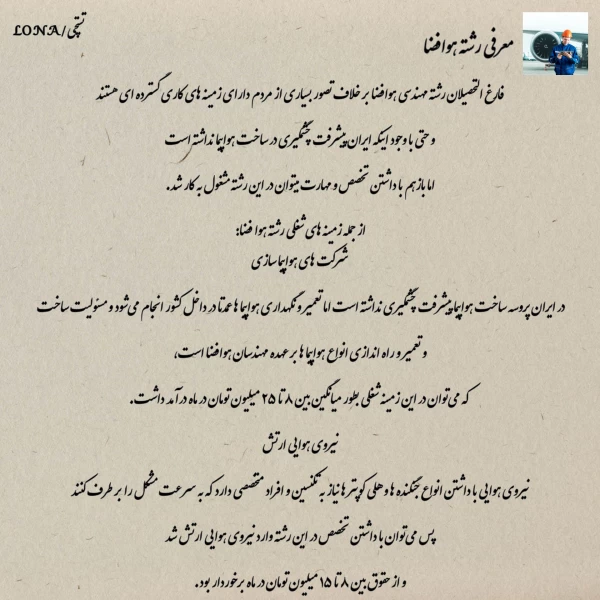 تستچی/LONA
معرفی رشته هوافضا
فارغ التحصیلان رشته مهندسی هوافضا بر خلاف تصور بسیاری از مردم دارای زمینه های کاری گسترده ای هستند
و حتی با وجود اینکه ایران پیشرفت چشمگیری در ساخت هواپیما نداشته است
اما باز هم با داشتن تخصص و مهارت میتوان در این رشته مشغول به کار شد.
از جمله زمینه های شغلی رشته هوا فضا:
شرکت های هواپیماسازی
در ایران پروسه ساخت هواپیما پیشرفت چشمگیری نداشته است اما تعمیر و نگهداری هواپیما ها عمدتا در داخل کشور انجام می‌شود و مسئولیت ساخت
و تعمیر و راه اندازی انواع هواپیما ها بر عهده مهندسان هوافضا است،
که می‌توان در این زمینه شغلی بطور میانگین بین ۸ تا ۲۵ میلیون تومان در ماه در آمد داشت.
نیروی هوایی ارتش
نیروی هوایی با داشتن انواع جنگنده ها و هلی کوپترها نیاز به تکنسین و افراد متخصصی دارد که به سرعت مشکل را بر طرف کنند
پس می‌توان با داشتن تخصص در این رشته وارد نیروی هوایی ارتش شد
و از حقوق بین ۸ تا ۱۵ میلیون تومان در ماه برخوردار بود.